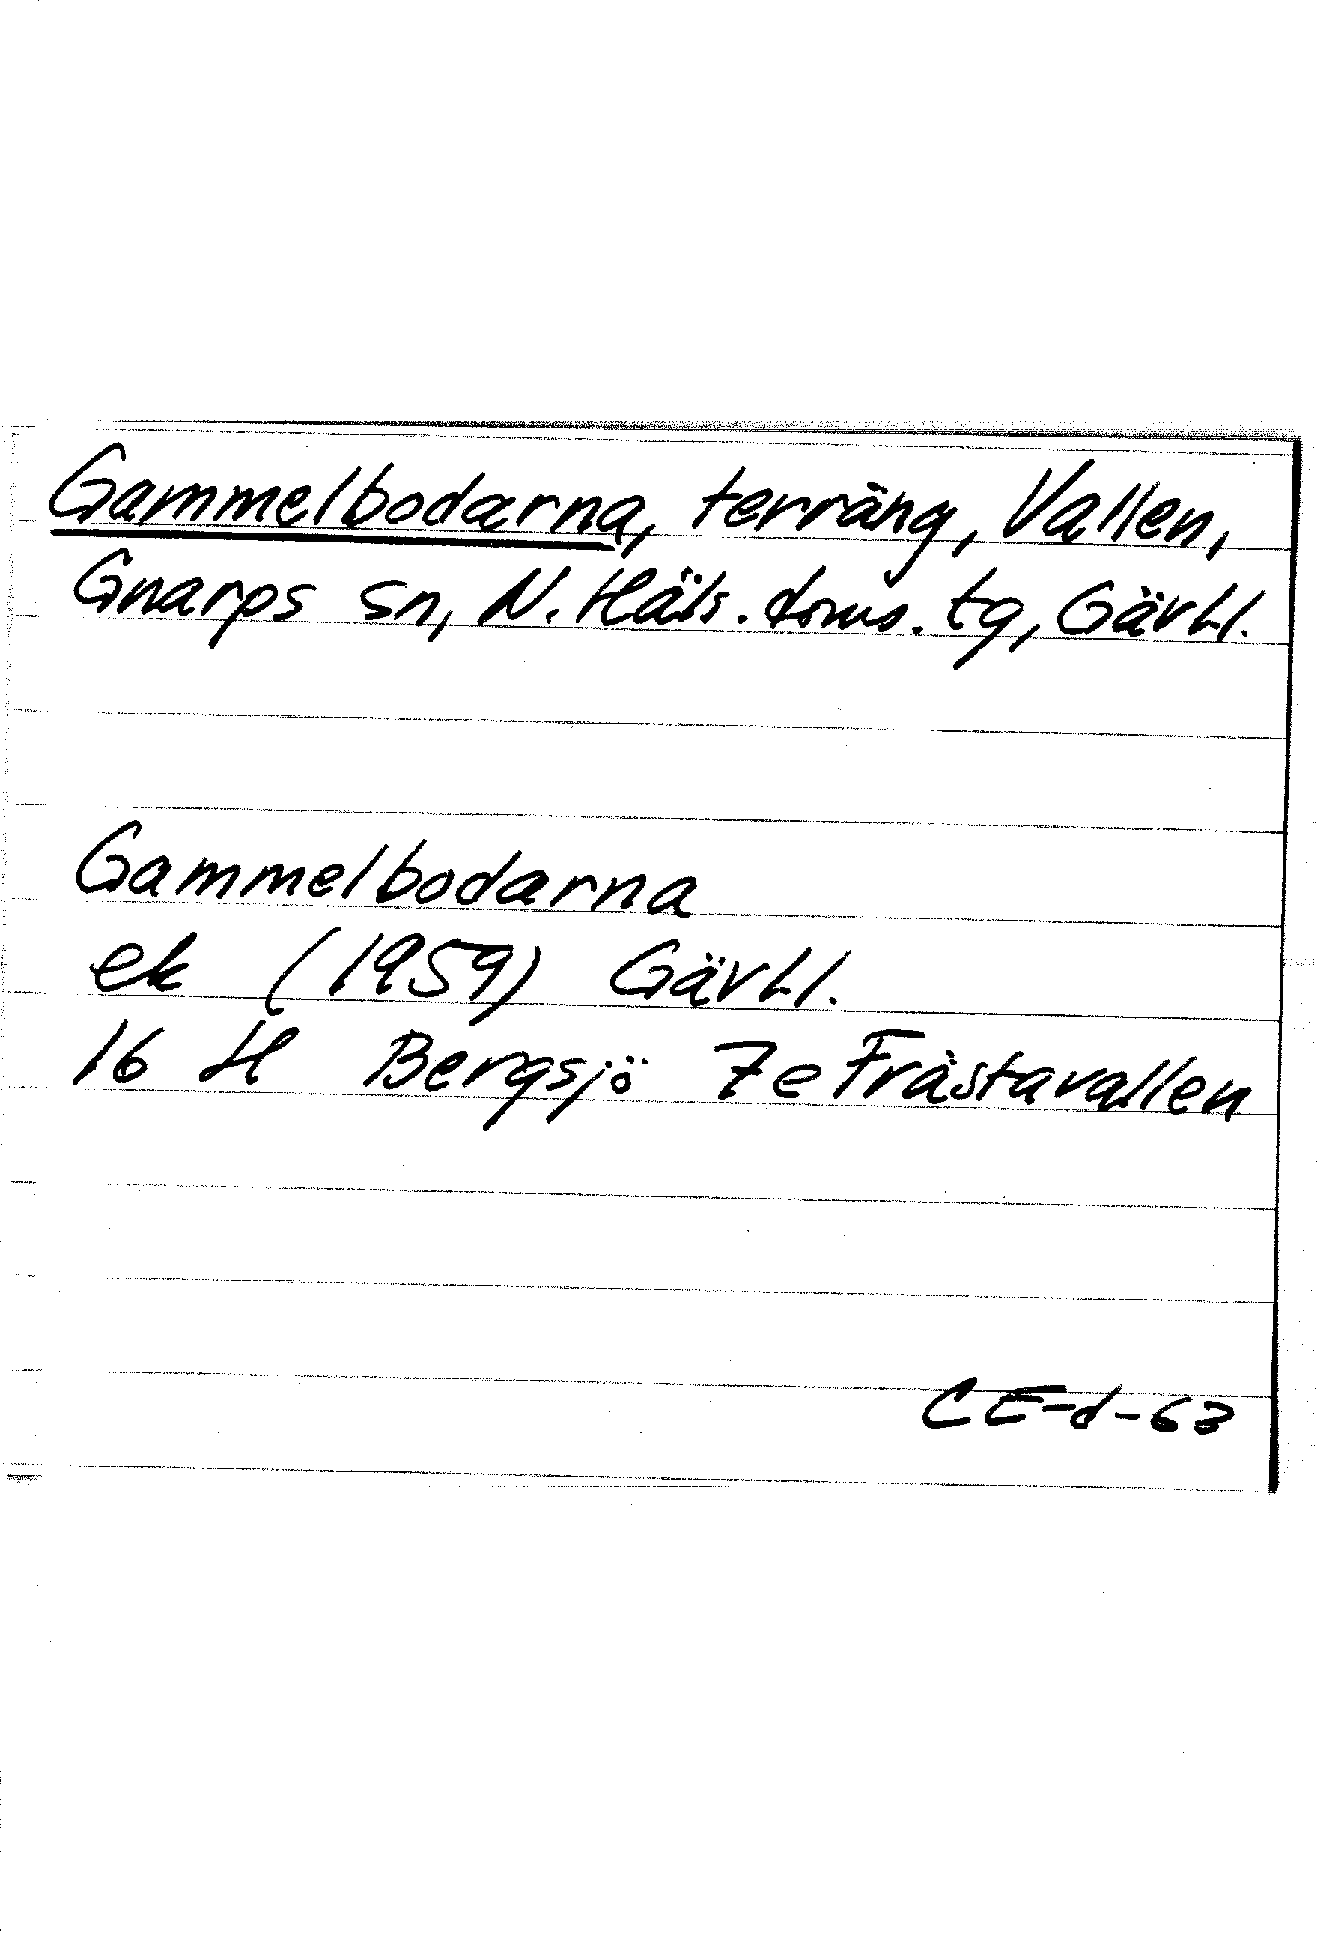 Gammelbodarna, terräng, Vallen,
Gnarps sn, N. Häls. doms. tg, Gävl.l.
Gammelbodarna
ek (1959) Gävl.l.
16 H Bergsjö 7e Frästavallen
CE-d-63